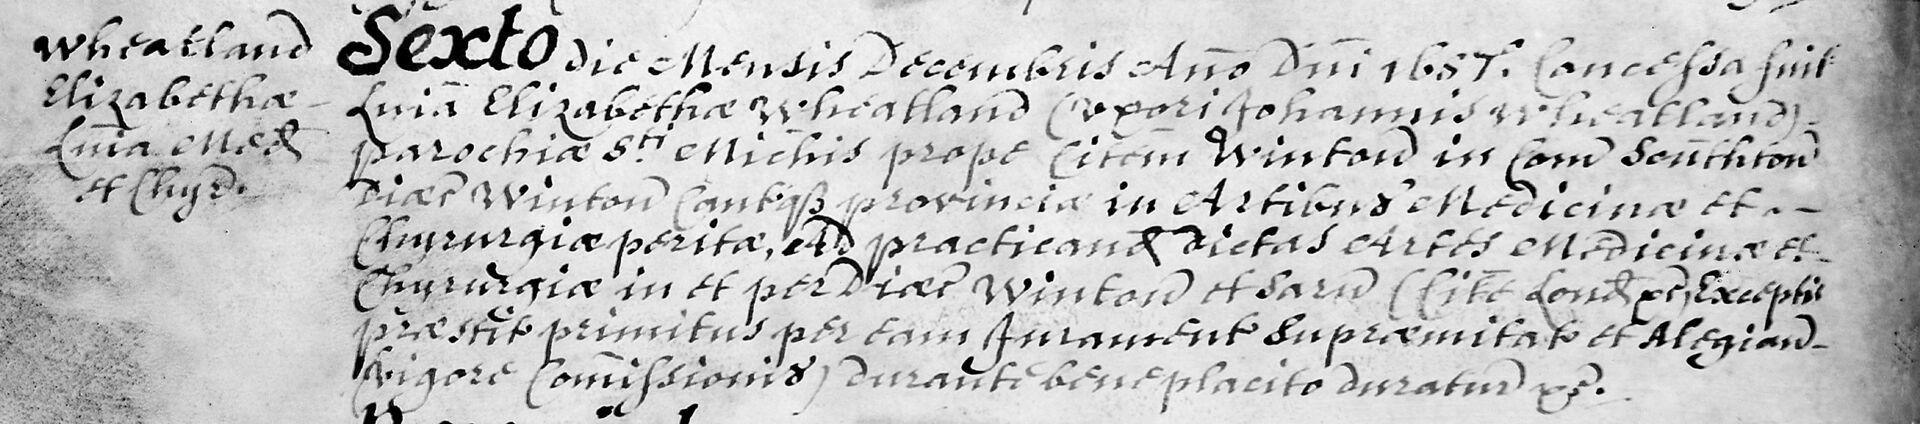 Wheatland
Elizabethæ
Lnīa Med
et Chyr.
Sexto die Mensis Decembris Año Dñi 1687. Concessa fuit
Lnīa Elizabethæ Wheatland (Uxori Johannis Wheatland)
parochiæ Sti Michis prope Citem Winton in Com Southton
Diæc Winton Cantqß provinciæ in Artibus Medicinæ et
Chyrurgiæ peritæ, Ad practicand dictas Artes Medicinæ et
Chyrurgiæ in et per Diæc Winton et Sarū (Citē Lond &c Exceptis
præstit primitus per eam Jurament Supræmitat et Alegian
vigore Comissionis) durante beneplacito duratur &c.